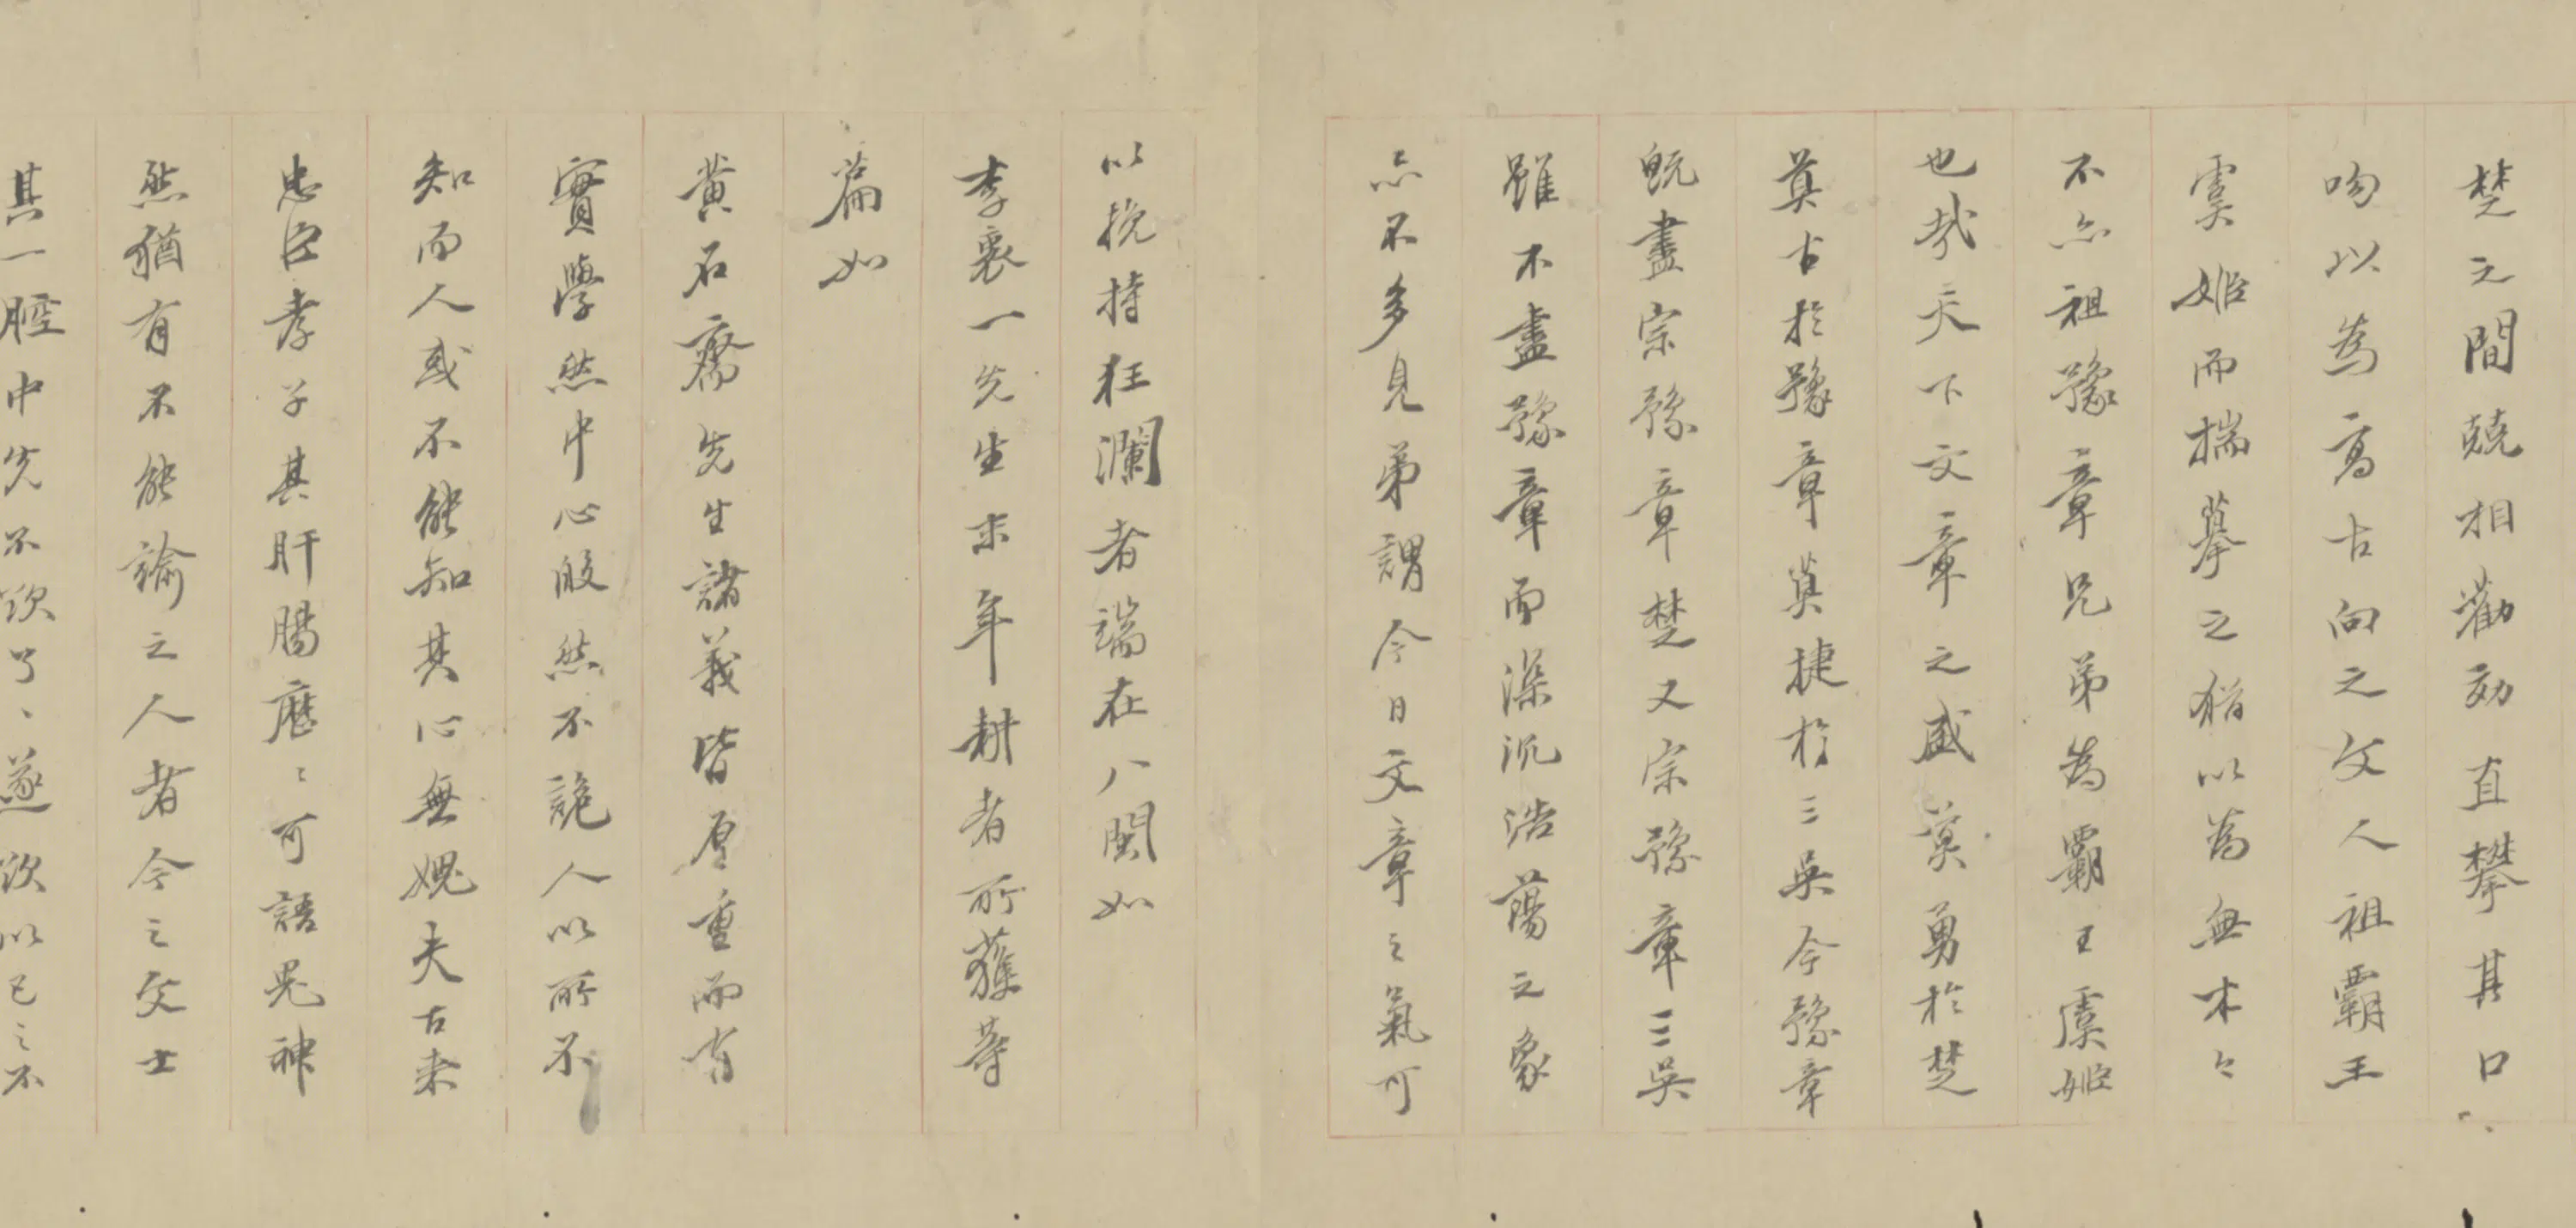 楚之間競相勸效直攀其口
吻以為高古向之文人祖霸王
虞姬而揣摹之猶以為無味今
不亦祖豫章兄弟為霸王虞姬
也哉天下文章之盛莫勇於楚
莫古於豫章莫捷於三吳今豫章
既盡宗豫章楚又宗豫章三吳
雖不盡豫章而深沉浩蕩之象
亦不多見弟謂今日文章之氣可
以挽持狂瀾者端在八閩如
李衷一先生末年耕者所獲等
篇如
黃石齋先生諸義皆厚重而有
實學然中心殷然不詭人以所不
知而人或不能知其心無媿夫古來
忠臣孝子其肝腸歷歷可語鬼神
然猶有不能諭之人者今之文士
其一腔中先不欲了了遂欲以己之不